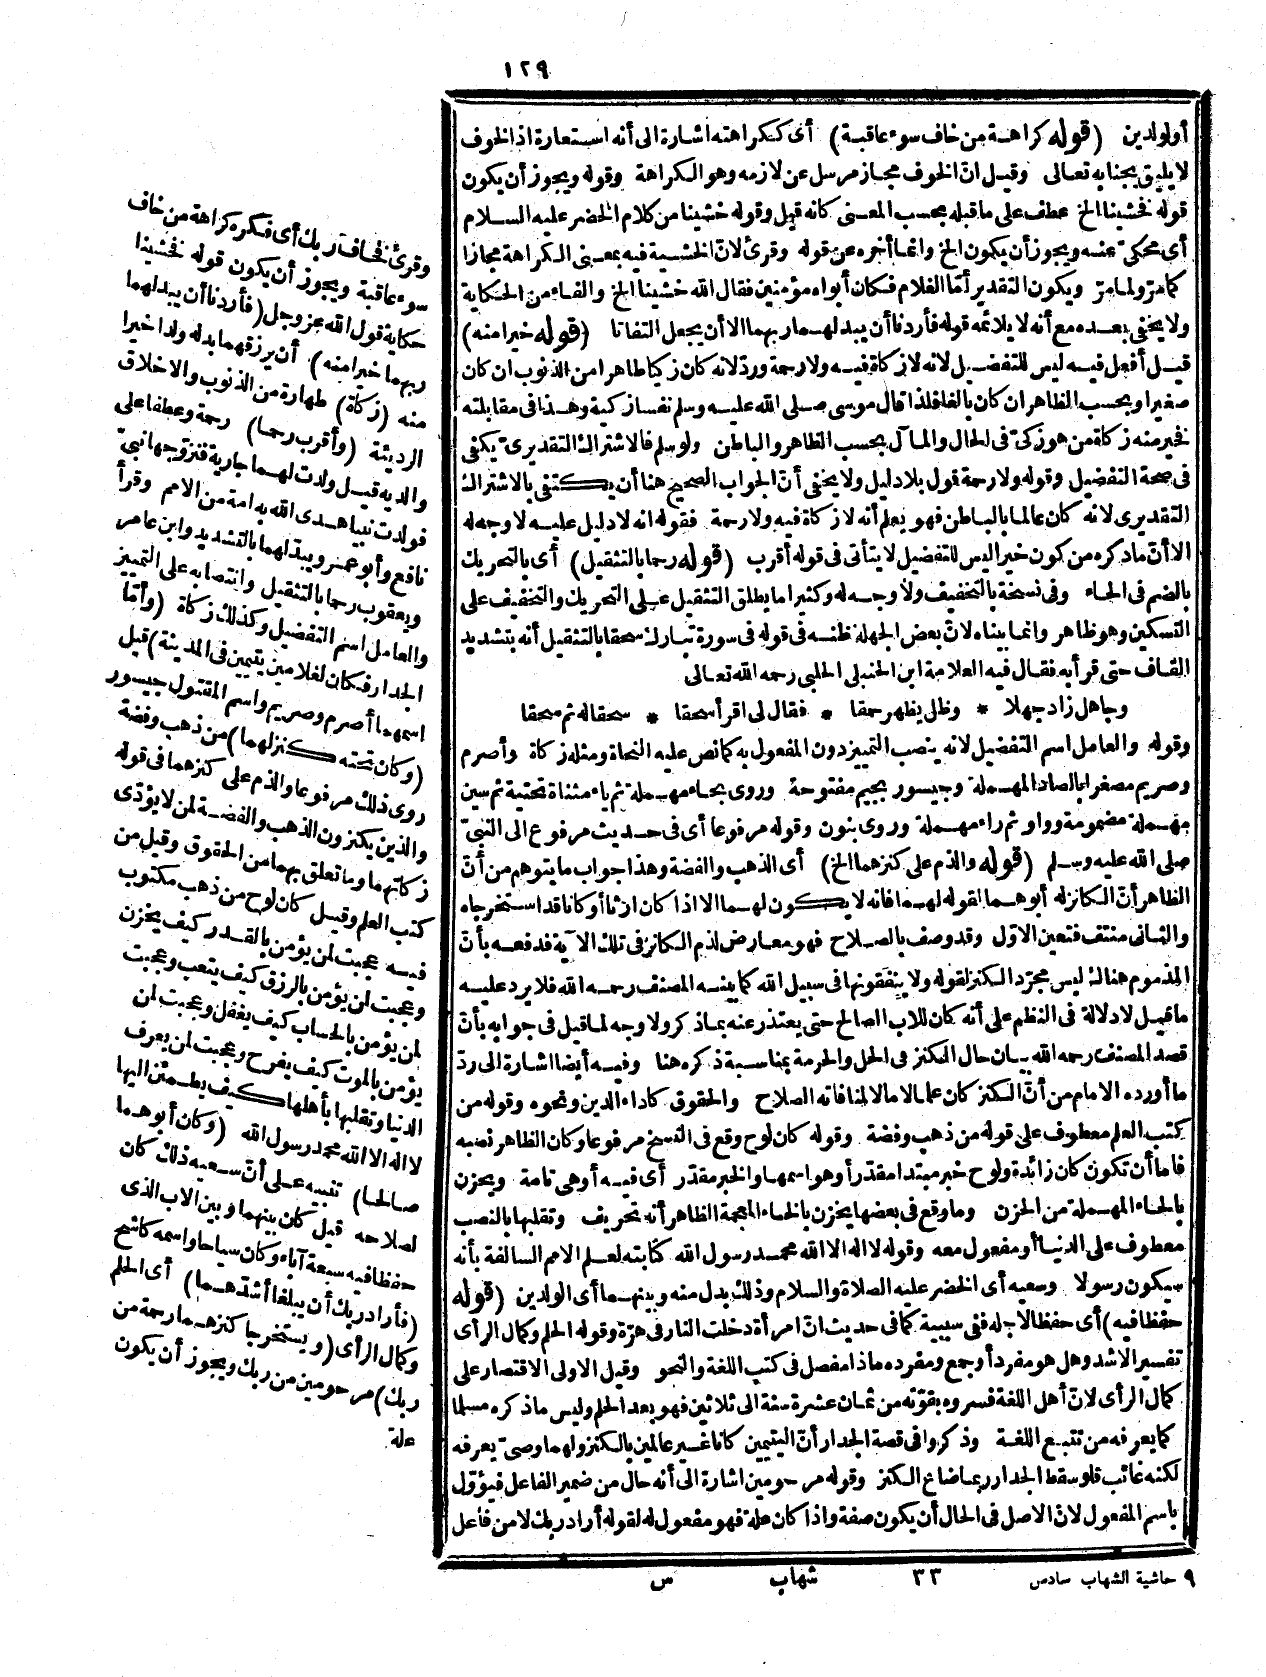 ١٢٩
أولولدين (قوله كراهة من خاف سوء عاقبة) أى ككراهته اشارة الى أنه استعارة اذ الخوف
لا يليق بجنابه تعالى وقيل انّ الخوف مجاز مرسل عن لازمه وهو الكراهة وقوله ويجوز أن يكون
قوله فخشينا الخ عطف على ما قبله بحسب المعنى كانه قيل وقوله خشينا من كلام الخضر عليه السلام
أى محكىّ عنه ويجوز أن يكون الخ وانما أخره عن قوله وقرئ لانّ الخشية فيه بمعنى الكراهة مجازا
كما مرّ ولما مرّ ويكون التقدير أمّا الغلام فكان أبواه مؤمنين فقال الله خشينا الخ والفاء من الحكاية
ولا يخفى بعده مع أنه لا يلائمه قوله فأردنا أن يبدلهما ربهما الا أن يجعل التفاتا (قوله خيرا منه)
قيل أفعل فيه ليس للتفضيل لانه لا زكاة فيه ولا رحمة وردّ لانه كان زكيا طاهرا من الذنوب ان كان
صغيرا وبحسب الظاهر ان كان بالغا فلذا قال موسى صلى الله عليه وسلم نفسا زكية وهذا فى مقابلته
فخير منه زكاة من هو زكىّ فى الحال والمآل بحسب الظاهر والباطن ولو سلم فالاشتراك التقديرىّ يكفى
فى صحة التفضيل وقوله ولا رحمة قول بلا دليل ولا يخفى أنّ الجواب الصحيح هنا أن يكتفى بالاشتراك
التقديرى لانه كان عالما بالباطن فهو يعلم أنه لا زكاة فيه ولا رحمة فقوله انه لا دليل عليه لا وجه له
الا أنّ ما ذكره من كون خيرا ليس للتفضيل لا يتأتى فى قوله أقرب (قوله رحما بالتثقيل) أى بالتحريك
بالضم فى الحاء وفى نسخة بالتخفيف ولا وجه له وكثيرا ما يطلق التثقيل على التحريك والتخفيف على
التسكين وهو ظاهر وانما بيناه لانّ بعض الجهلة ظنه فى قوله فى سورة تبارك سحقا بالتثقيل أنه بتشديد
القاف حتى قرأ به فقال فيه العلامة ابن الحنبلى الحلبى رحمه الله تعالى
وجاهل زاد جهلا * وظل يظهر حمقا * فقال لى اقرأ سحقا * سحقا له ثم سحقا
وقوله والعامل اسم التفضيل لانه ينصب التمييز دون المفعول به كما نص عليه النحاة ومثله زكاة وأصرم
وصريم مصغرا بالصاد المهملة وجيسور بجيم مفتوحة وروى بحاء مهملة ثم ياء مثناة تحتية ثم سين
مهملة مضمومة وواو ثم راء مهملة وروى بنون وقوله مرفوعا أى فى حديث مرفوع الى النبىّ
صلى الله عليه وسلم (قوله والذم على كنزهما الخ) أى الذهب والفضة وهذا جواب ما يتوهم من أنّ
الظاهر أنّ الكانز له أبوهما لقوله لهما فانه لا يكون لهما الا اذا كان ارثا أو كانا قد استخرجاه
والثانى منتف فتعين الاوّل وقد وصف بالصلاح فهو معارض لذم الكانز فى تلك الآية فدفعه بأنّ
المذموم هنالك ليس مجرّد الكنز لقوله ولا ينفقونها فى سبيل الله كما بينه المصنف رحمه الله فلا يرد عليه
ما قيل لا دلالة فى النظم على أنه كان للاب الصالح حتى يعتذر عنه بما ذكر ولا وجه لما قيل فى جوابه بأنّ
قصد المصنف رحمه الله بيان حال الكنز فى الحل والحرمة بمناسبة ذكره هنا وفيه أيضا اشارة الى ردّ
ما أورده الامام من أنّ الكنز كان علما لا مالا لمنافاته الصلاح والحقوق كاداء الدين ونحوه وقوله من
كتب العلم معطوف على قوله من ذهب وفضة وقوله كان لوح وقع فى النسخ مرفوعا وكان الظاهر نصبه
فاما أن تكون كان زائدة ولوح خبر مبتدا مقدّر أو هو اسمها والخبر مقدّر أى فيه أو هى تامة ويحزن
بالحاء المهملة من الحزن وما وقع فى بعضها يخزن بالخاء المعجمة الظاهر أنه تحريف وتقلبها بالنصب
معطوف على الدنيا أو مفعول معه وقوله لا اله الا الله محمد رسول الله كتابته لعلم الامم السالفة بأنه
سيكون رسولا وسعيه أى الخضر عليه الصلاة والسلام وذلك بدل منه وبينهما أى الولدين (قوله
حفظا فيه) أى حفظا لاجله ففى سببية كما فى حديث انّ امرأة دخلت النار فى هرّة وقوله الحلم وكمال الرأى
تفسير الاشد وهل هو مفرد أو جمع ومفرده ماذا مفصل فى كتب اللغة والنحو وقيل الاولى الاقتصار على
كمال الرأى لانّ أهل اللغة فسروه بقوّته من ثمان عشرة سنة الى ثلاثين فهو بعد الحلم وليس ما ذكره مسلما
كما يعرفه من تتبع اللغة وذكروا فى قصة الجدار أنّ اليتيمين كانا غير عالمين بالكنز ولهما وصىّ يعرفه
لكنه غائب فلو سقط الجدار ربما ضاع الكنز وقوله مرحومين اشارة الى أنه حال من ضمير الفاعل فيؤوّل
باسم المفعول لانّ الاصل فى الحال أن يكون صفة واذا كان علة فهو مفعول له لقوله أراد ربك لا من فاعل
وقرئ فخاف ربك أى فكره كراهة من خاف
سوء عاقبة ويجوز أن يكون قوله فخشينا
حكاية قول الله عز وجل (فأردنا أن يبدلهما
ربهما خيرا منه) أن يرزقهما بدله ولدا خيرا
منه (زكاة) طهارة من الذنوب والاخلاق
الرديئة (وأقرب رحما) رحمة وعطفا على
والديه قيل ولدت لهما جارية فتزوجها نبىّ
فولدت نبيا هدى الله به امة من الامم وقرأ
نافع وأبو عمرو يبدّلهما بالتشديد وابن عامر
ويعقوب رحما بالتثقيل وانتصابه على التمييز
والعامل اسم التفضيل وكذلك زكاة (وأمّا
الجدار فكان لغلامين يتيمين فى المدينة) قيل
اسمهما أصرم وصريم واسم المقتول جيسور
(وكان تحته كنز لهما) من ذهب وفضة
روى ذلك مرفوعا والذم على كنزهما فى قوله
والذين يكنزون الذهب والفضة لمن لا يؤدّى
زكاتهما وما تعلق بهما من الحقوق وقيل من
كتب العلم وقيل كان لوح من ذهب مكتوب
فيه عجبت لمن يؤمن بالقدر كيف يحزن
وعجبت لمن يؤمن بالرزق كيف يتعب وعجبت
لمن يؤمن بالحساب كيف يغفل وعجبت لمن
يؤمن بالموت كيف يفرح وعجبت لمن يعرف
الدنيا وتقلبها بأهلها كيف يطمئنّ اليها
لا اله الا الله محمد رسول الله (وكان أبوهما
صالحا) تنبيه على أنّ سعيه ذلك كان
لصلاحه قيل كان بينهما وبين الاب الذى
حفظا فيه سبعة آباء وكان سياحا واسمه كاشح
(فأراد ربك أن يبلغا أشدّهما) أى الحلم
وكمال الرأى (ويستخرجا كنزهما رحمة من
ربك) مرحومين من ربك ويجوز أن يكون
علة
٩ حاشية الشهاب سادس ٣٣ شهاب س